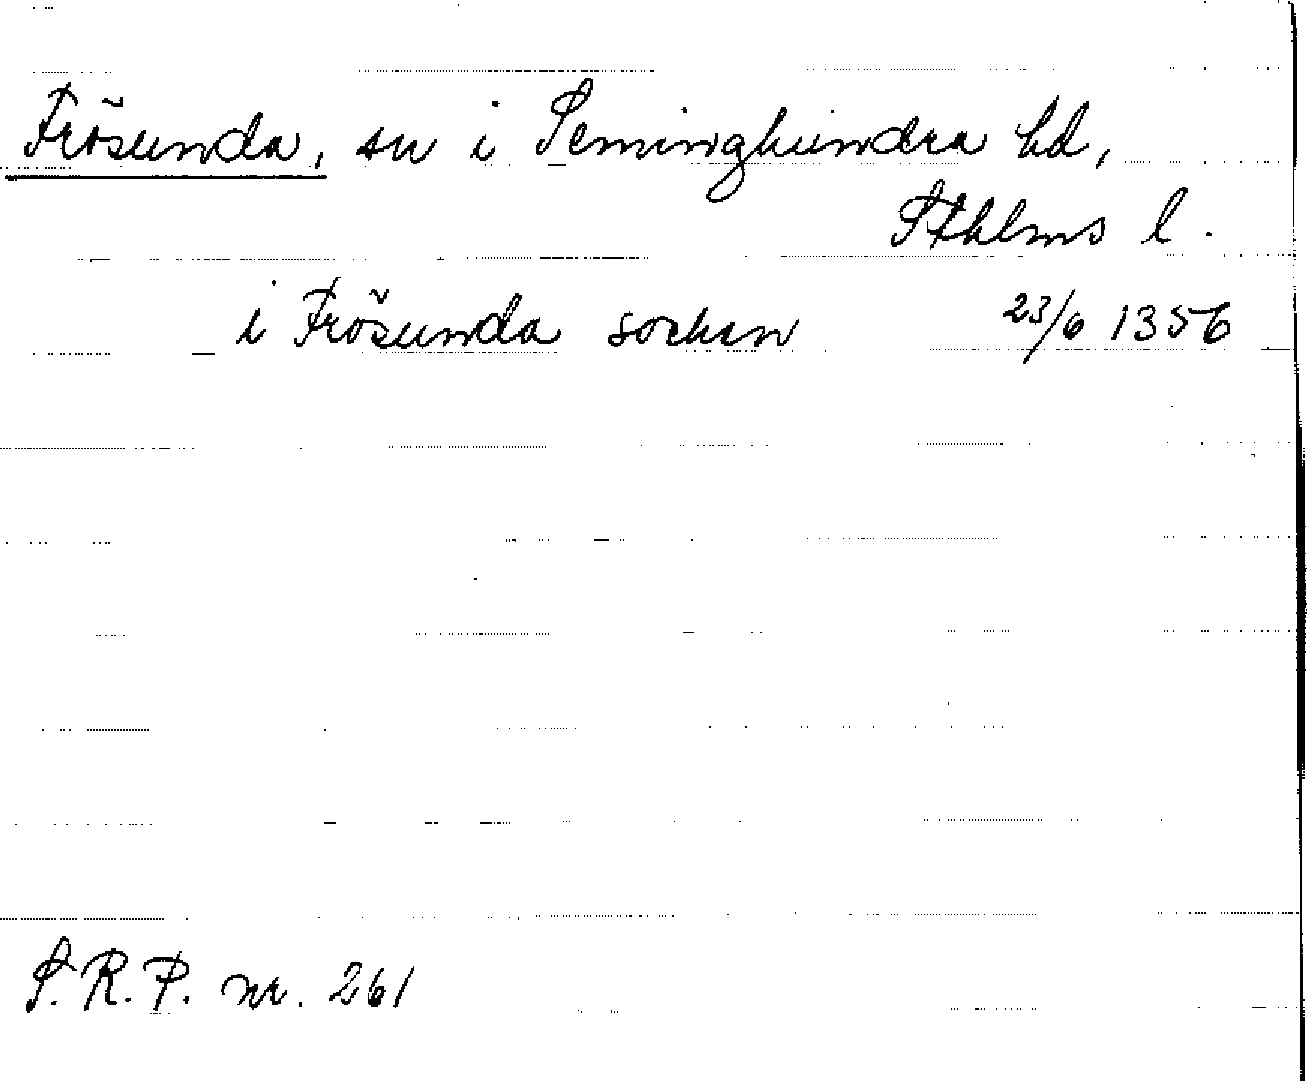 Frösunda, sn i Seminghundra hd,
Sthlms l.
i Frösunda sockn 23/6 1356
S.R.P. nr. 261